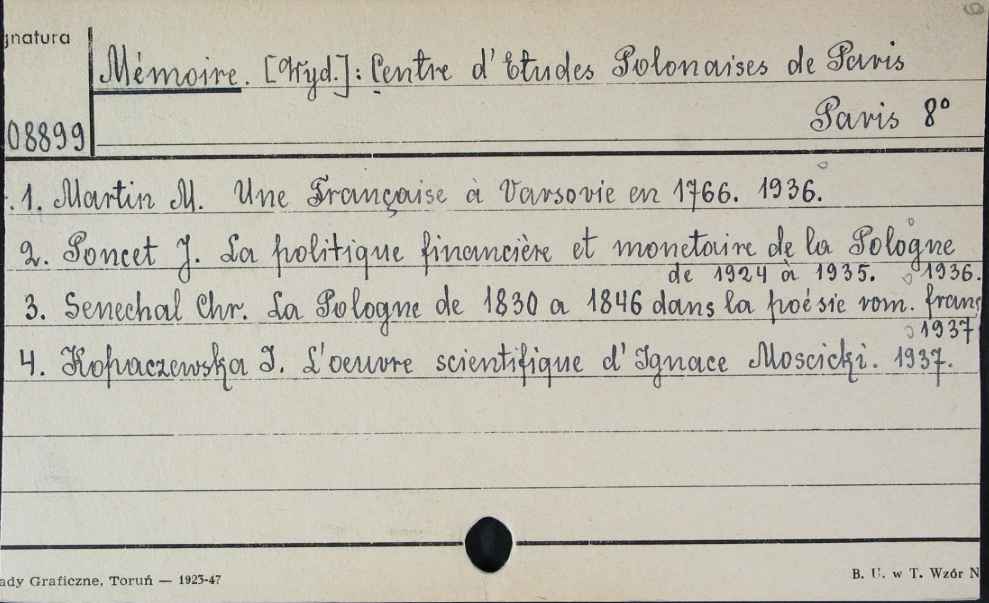 gnatura
Mémoire. [Wyd.]: Centre d'Etudes Polonaises de Paris
Paris 8°
08899
1. Martin M. Une Française à Varsovie en 1766. 1936.
2. Poncet J. La politique financière et monetaire de la Pologne
de 1924 à 1935. 1936.
3. Senechal Chr. La Pologne de 1830 a 1846 dans la poésie rom. franç
1937
4. Kopaczewska I. L'oeuvre scientifique d'Ignace Moscicki. 1937.
ady Graficzne, Toruń — 1923-47
B. U. w T. Wzór N